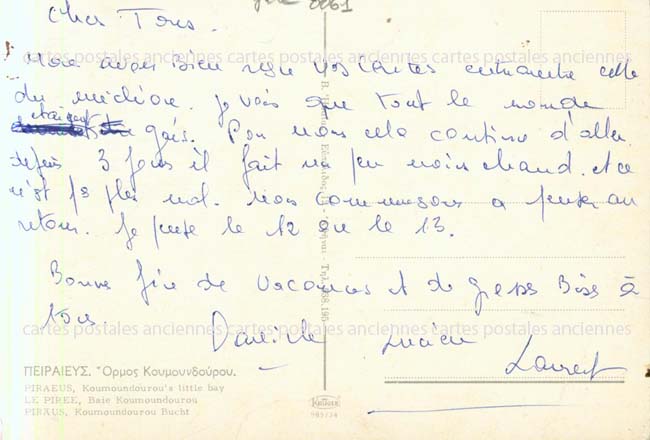 Cher Tous.
Nous avons bien reçu vos cartes entrainante celle
du . Je vois que tout le monde
étaient gais. Pour nous cela continue d'aller.
depuis 3 jours il fait un peu moins chaud. et ce
n'est pas plus mal. Nous commençons a penser au
retour. Je pense le 12 ou le 13.
Bonne fin de vacances et de gros Bises à
tous.
Danielle Lucien
Laurent
cartes postales anciennes cartes postales anciennes cartes postales anciennes
cartes postales anciennes cartes postales anciennes cartes postales anciennes
cartes postales anciennes cartes postales anciennes cartes postales anciennes
ΠΕΙΡΑΙΕΥΣ. Ὅρμος Κουμουνδούρου.
PIRAEUS, Koumoundourou's little bay
LE PIREE, Baie Koumoundourou
PIRÄUS, Koumoundourou Bucht
KRÜGER
989/34